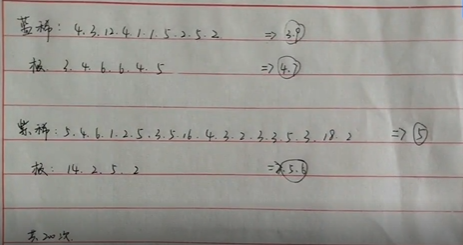 蓝稀: 4.3.12.4.1.1.5.2.5.2 => 3.9
极 3.4.6.6.4.5 => 4.7
紫稀: 5.4.6.1.2.5.3.5.16.4.3.2.3.3.5.3.18.2 => 5
极: 14.2.5.2 => 5.8
共200次